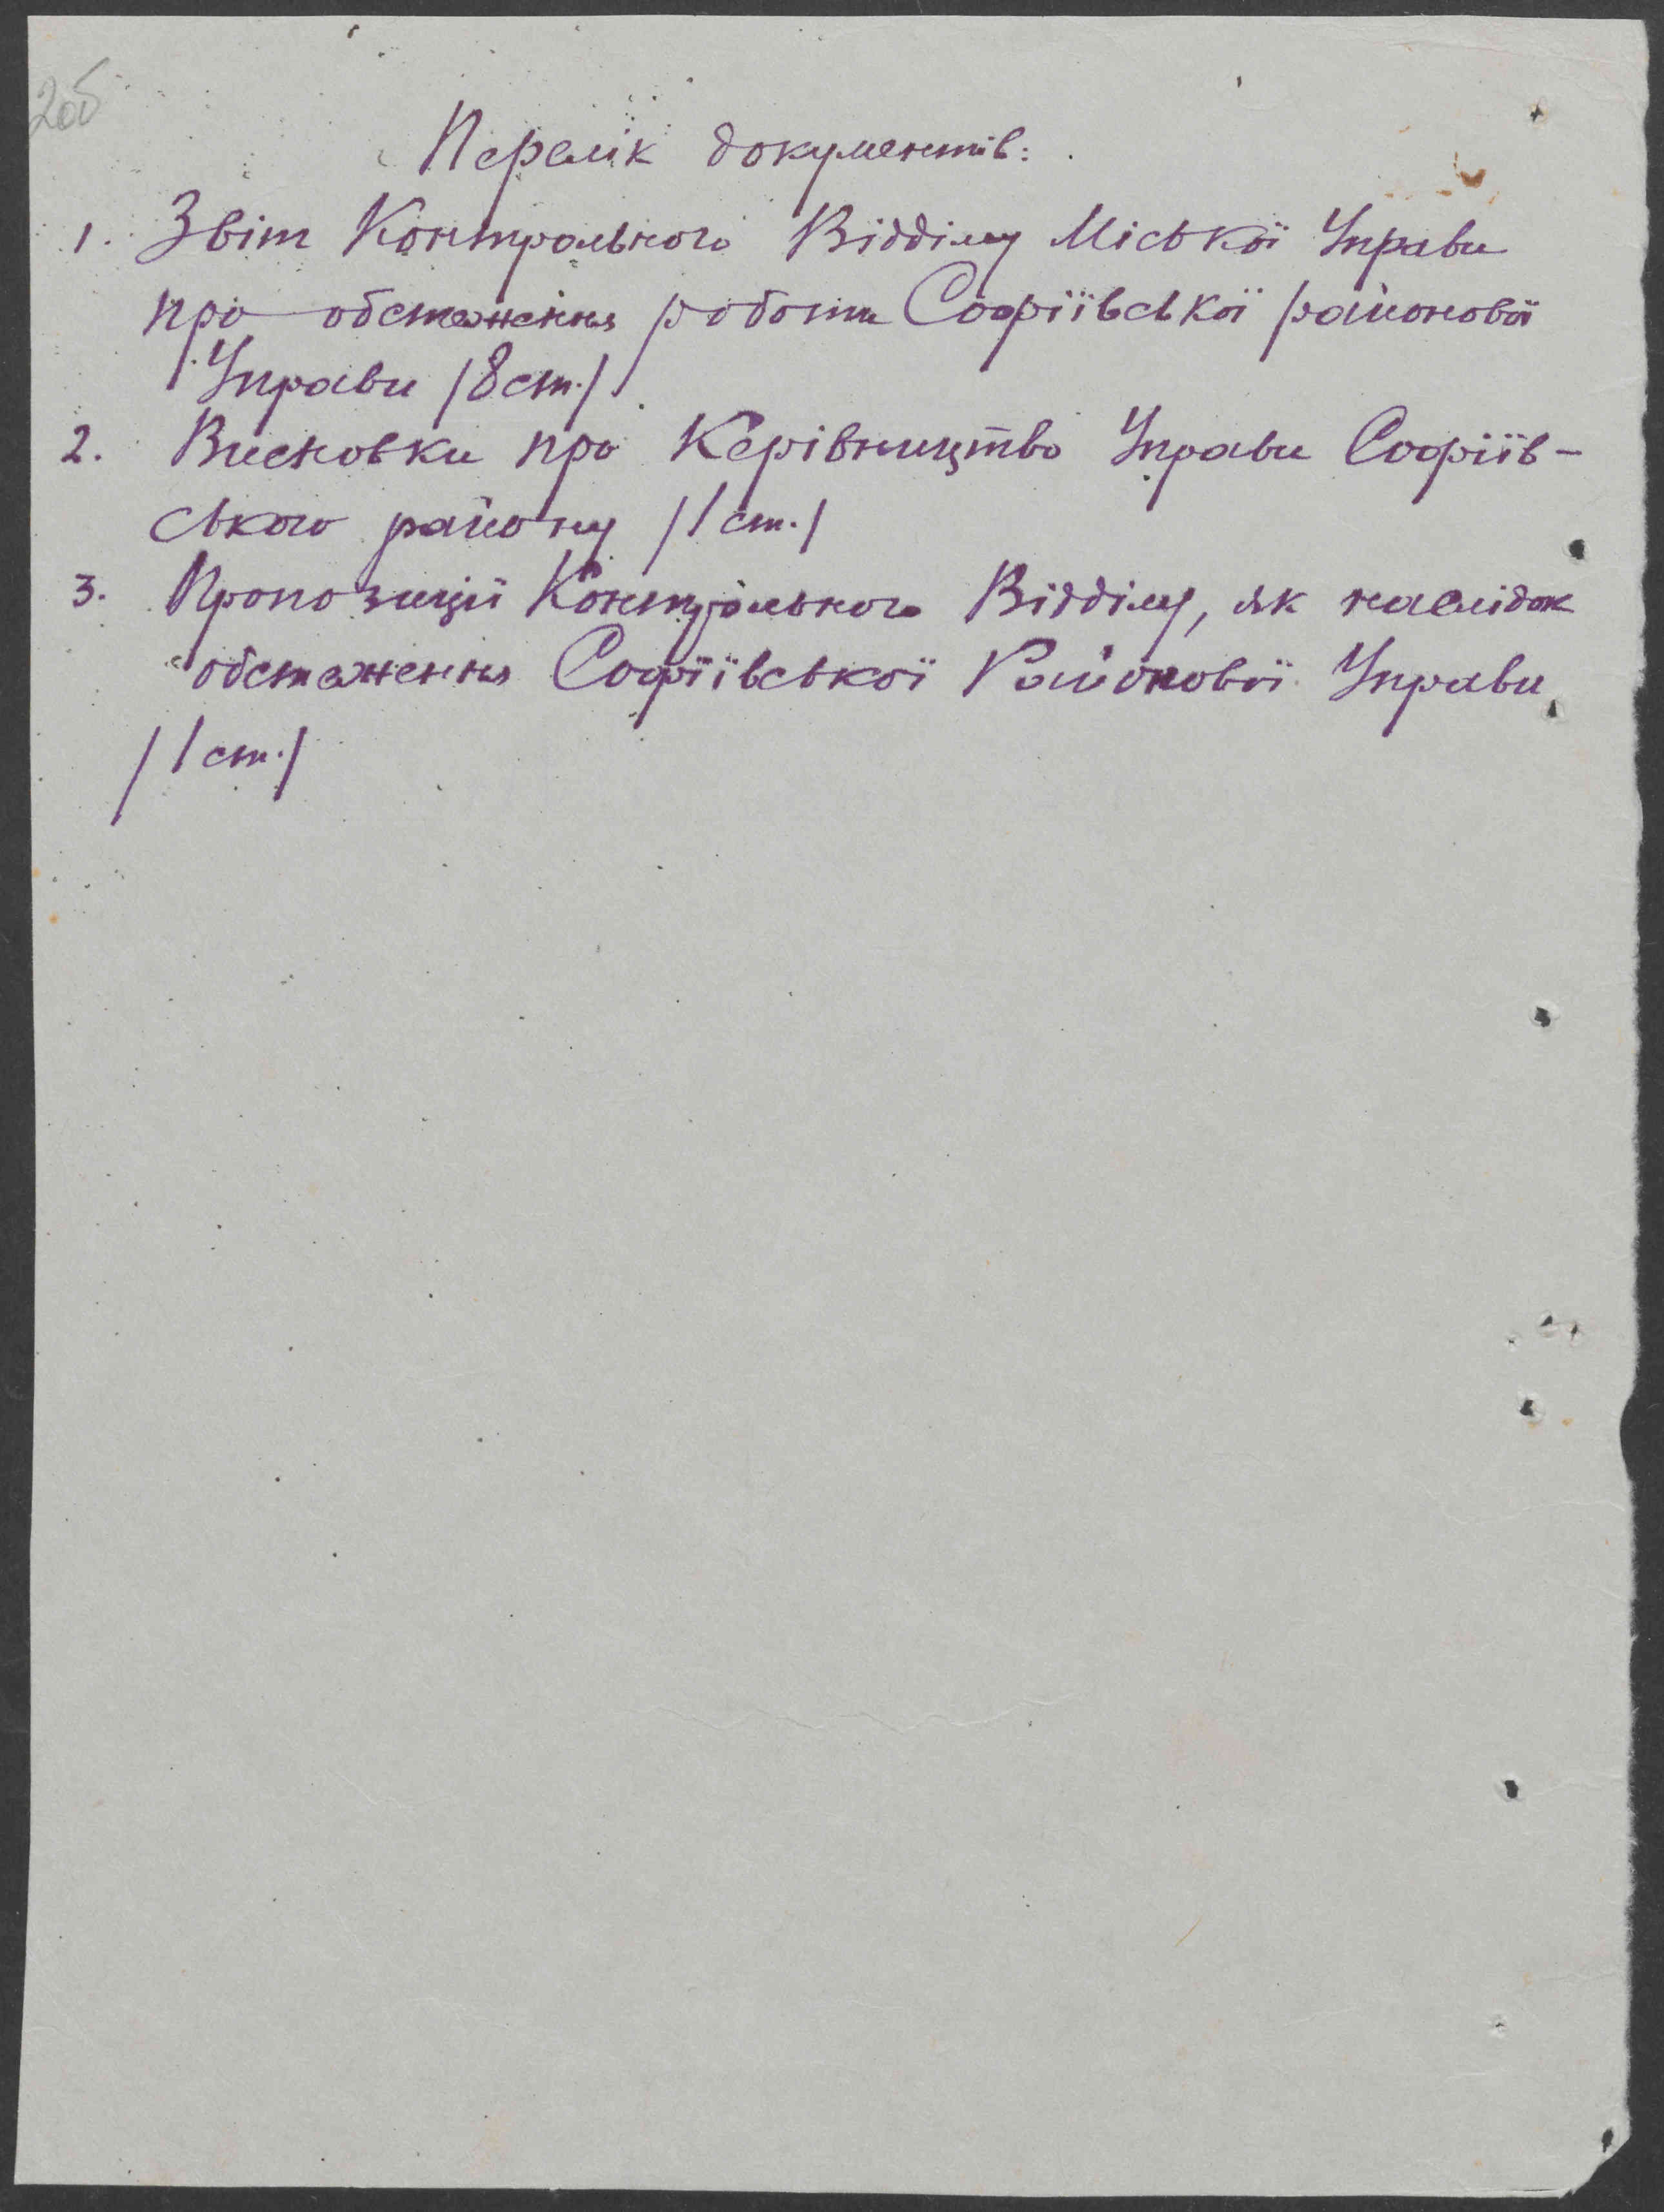 2об
Перелік документів:
1. Звіт Контрольного Відділу Міської Управи
про обстеження роботи Софіївської районової
Управи /8 ст./
2. Висновки про Керівництво Управи Софіїв-
ського району /1 ст./
3. Пропозиції Контрольного Відділу, як наслідок
обстеження Софіївської Районової Управи
/1 ст./